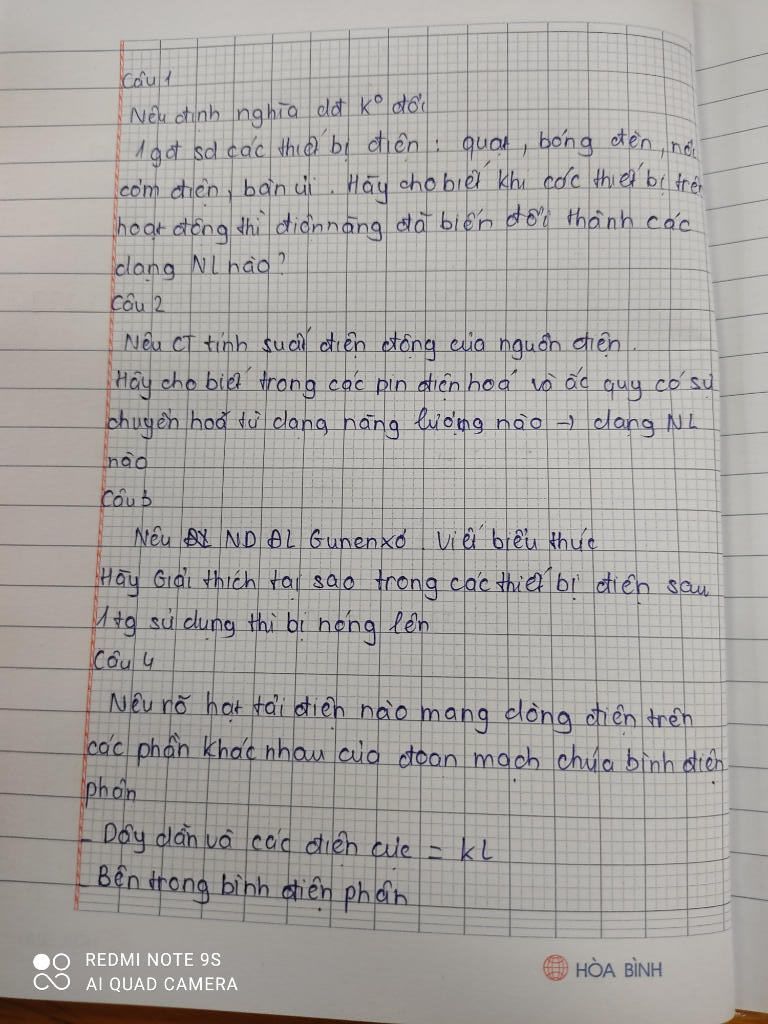 Câu 1
Nêu định nghĩa dđ k° đổi
1 gđ sd các thiết bị điện : quạt, bóng đèn, nồi
cơm điện, bàn ủi. Hãy cho biết khi các thiết bị trên
hoạt động thì điện năng đã biến đổi thành các
dạng NL nào?
Câu 2
Nêu CT tính suất điện động của nguồn điện.
Hãy cho biết trong các pin điện hoá và ắc quy có sự
chuyển hoá từ dạng năng lượng nào → dạng NL
nào
Câu 3
Nêu ND ĐL Gunenxơ. Viết biểu thức
Hãy Giải thích tại sao trong các thiết bị điện sau
1 tg sử dụng thì bị nóng lên
Câu 4
Nêu rõ hạt tải điện nào mang dòng điện trên
các phần khác nhau của đoạn mạch chứa bình điện
phân
- Dây dẫn và các điện cực = KL
- Bên trong bình điện phân
REDMI NOTE 9S
AI QUAD CAMERA
HÒA BÌNH